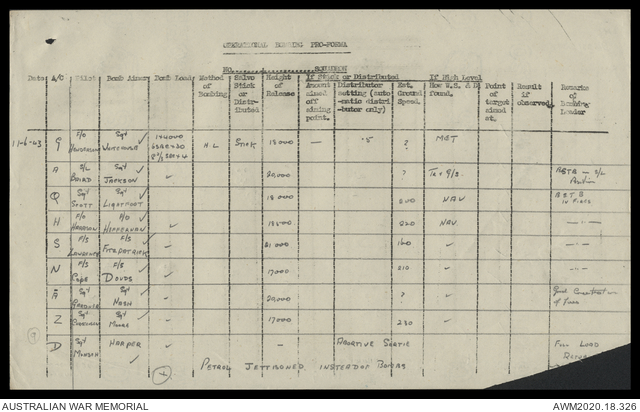 OPERATIONAL BOMBING PRO-FORMA
NO. SQUADRON
Date A/C Pilot Bomb Aimer Bomb Load Method of Bombing Salvo Stick or Distributed Height of Release If Stick or Distributed Amount aimed off aiming point. Distributor setting (automatic distributor only) Est. Ground Speed. If High Level How W.S. & D. found. Point of target aimed at. Result if observed. Remarks of Bombing Leader
11-6-43 G F/O Sgt ✓ H.L Stick 18000 — .5 ? MET
A S/L Baird Sgt Jackson ✓ 20,000 ? ABTB — S/L
Q Sgt Scott Sgt Lightfoot ✓ 18000 200 NAV ABTB in Fires
H F/O Harrison F/O Heffernan ✓ 18500 220 NAV
S F/S Lawrence F/S Fitzpatrick ✓ 21000 160
N F/S F/S Douds ✓ 17000 210
A Sgt Gardner Sgt Nash ✓ 20,000 ? Good Concentration of fires
Z Sgt Sgt Moore ✓ 17000 230
D Sgt Harper ✓ — Abortive Sortie Full Load
Petrol Jettisoned instead of Bombs
AUSTRALIAN WAR MEMORIAL
AWM2020.18.326